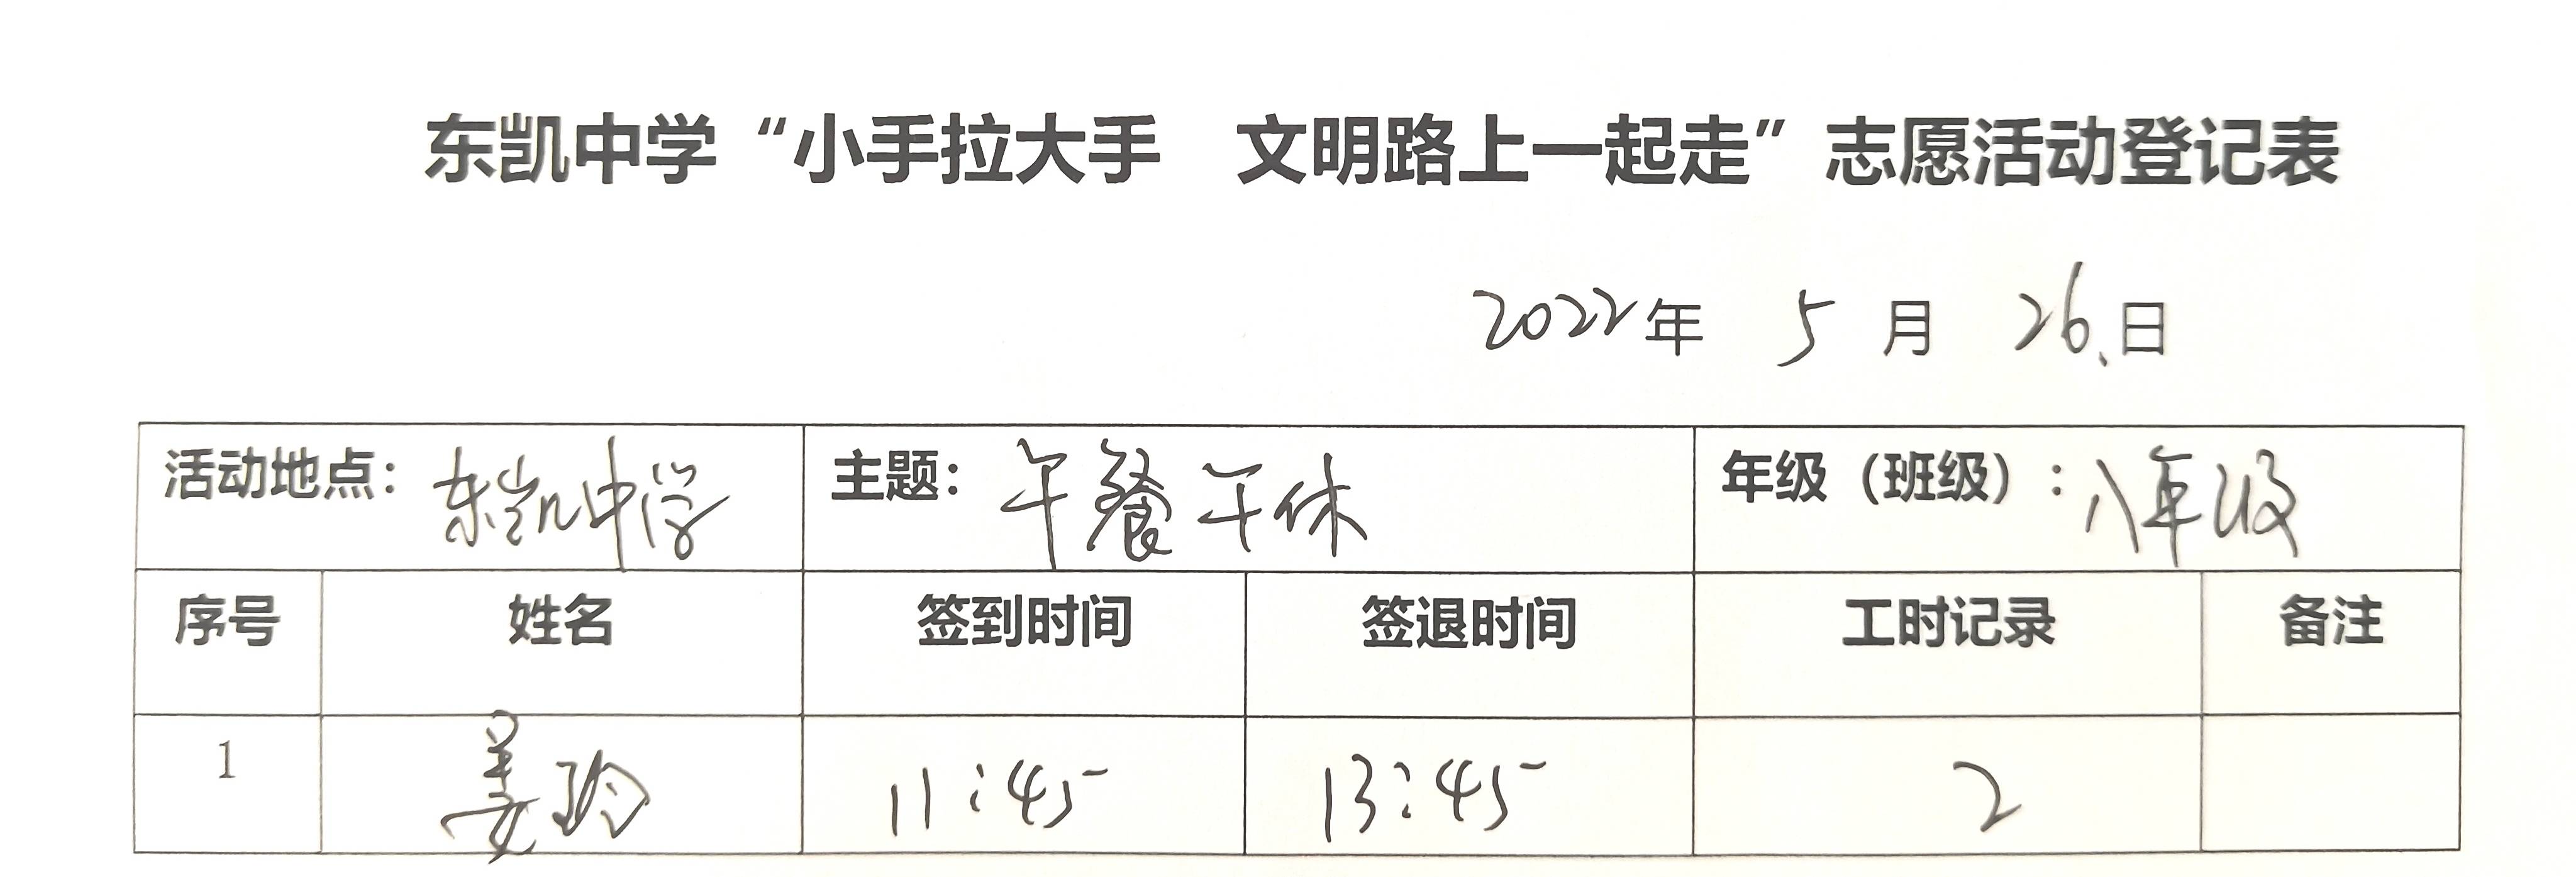 东凯中学“小手拉大手 文明路上一起走”志愿活动登记表
2022年 5 月 26日
活动地点：东凯中学 主题：午餐午休 年级（班级）：八年级
序号 姓名 签到时间 签退时间 工时记录 备注
1 姜玲 11:45 13:45 2